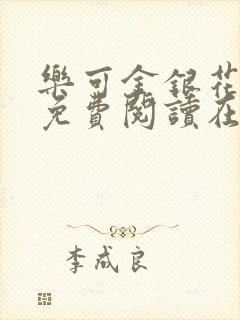 樂可金銀花
免費閱讀在
李成良